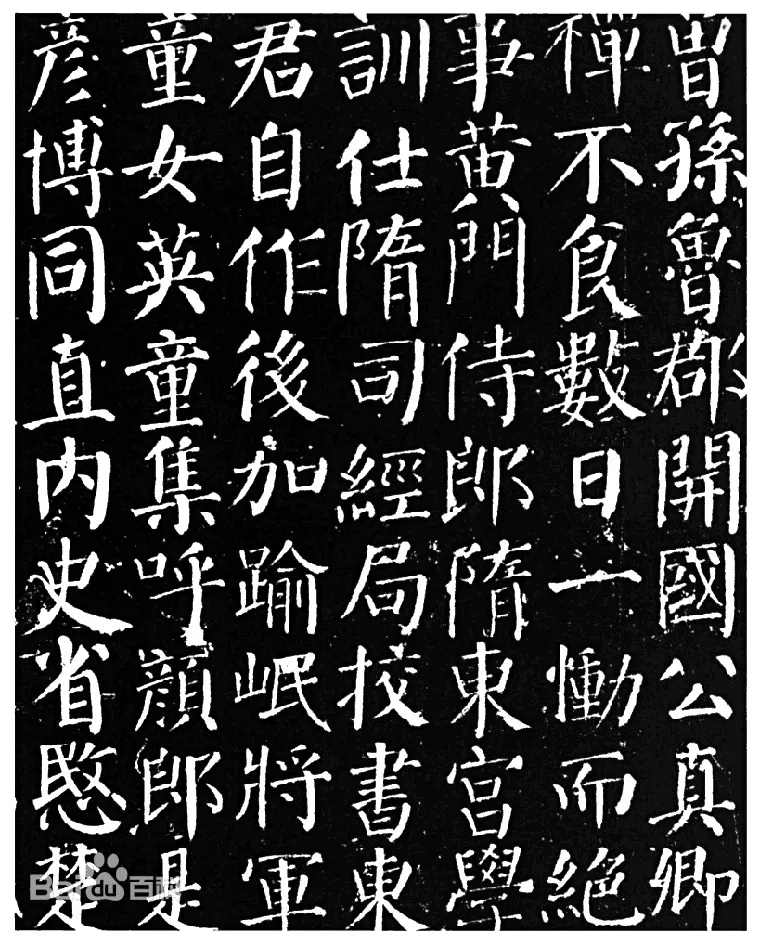 曾孫魯郡開國公真卿
禪不食數日一慟而絶
事黄門侍郎隋東宮學
訓仕隋司經局挍書東
君自作後加踰岷將軍
童女英童集呼顔郎是
彦博同直内史省愍楚
Baidu百科